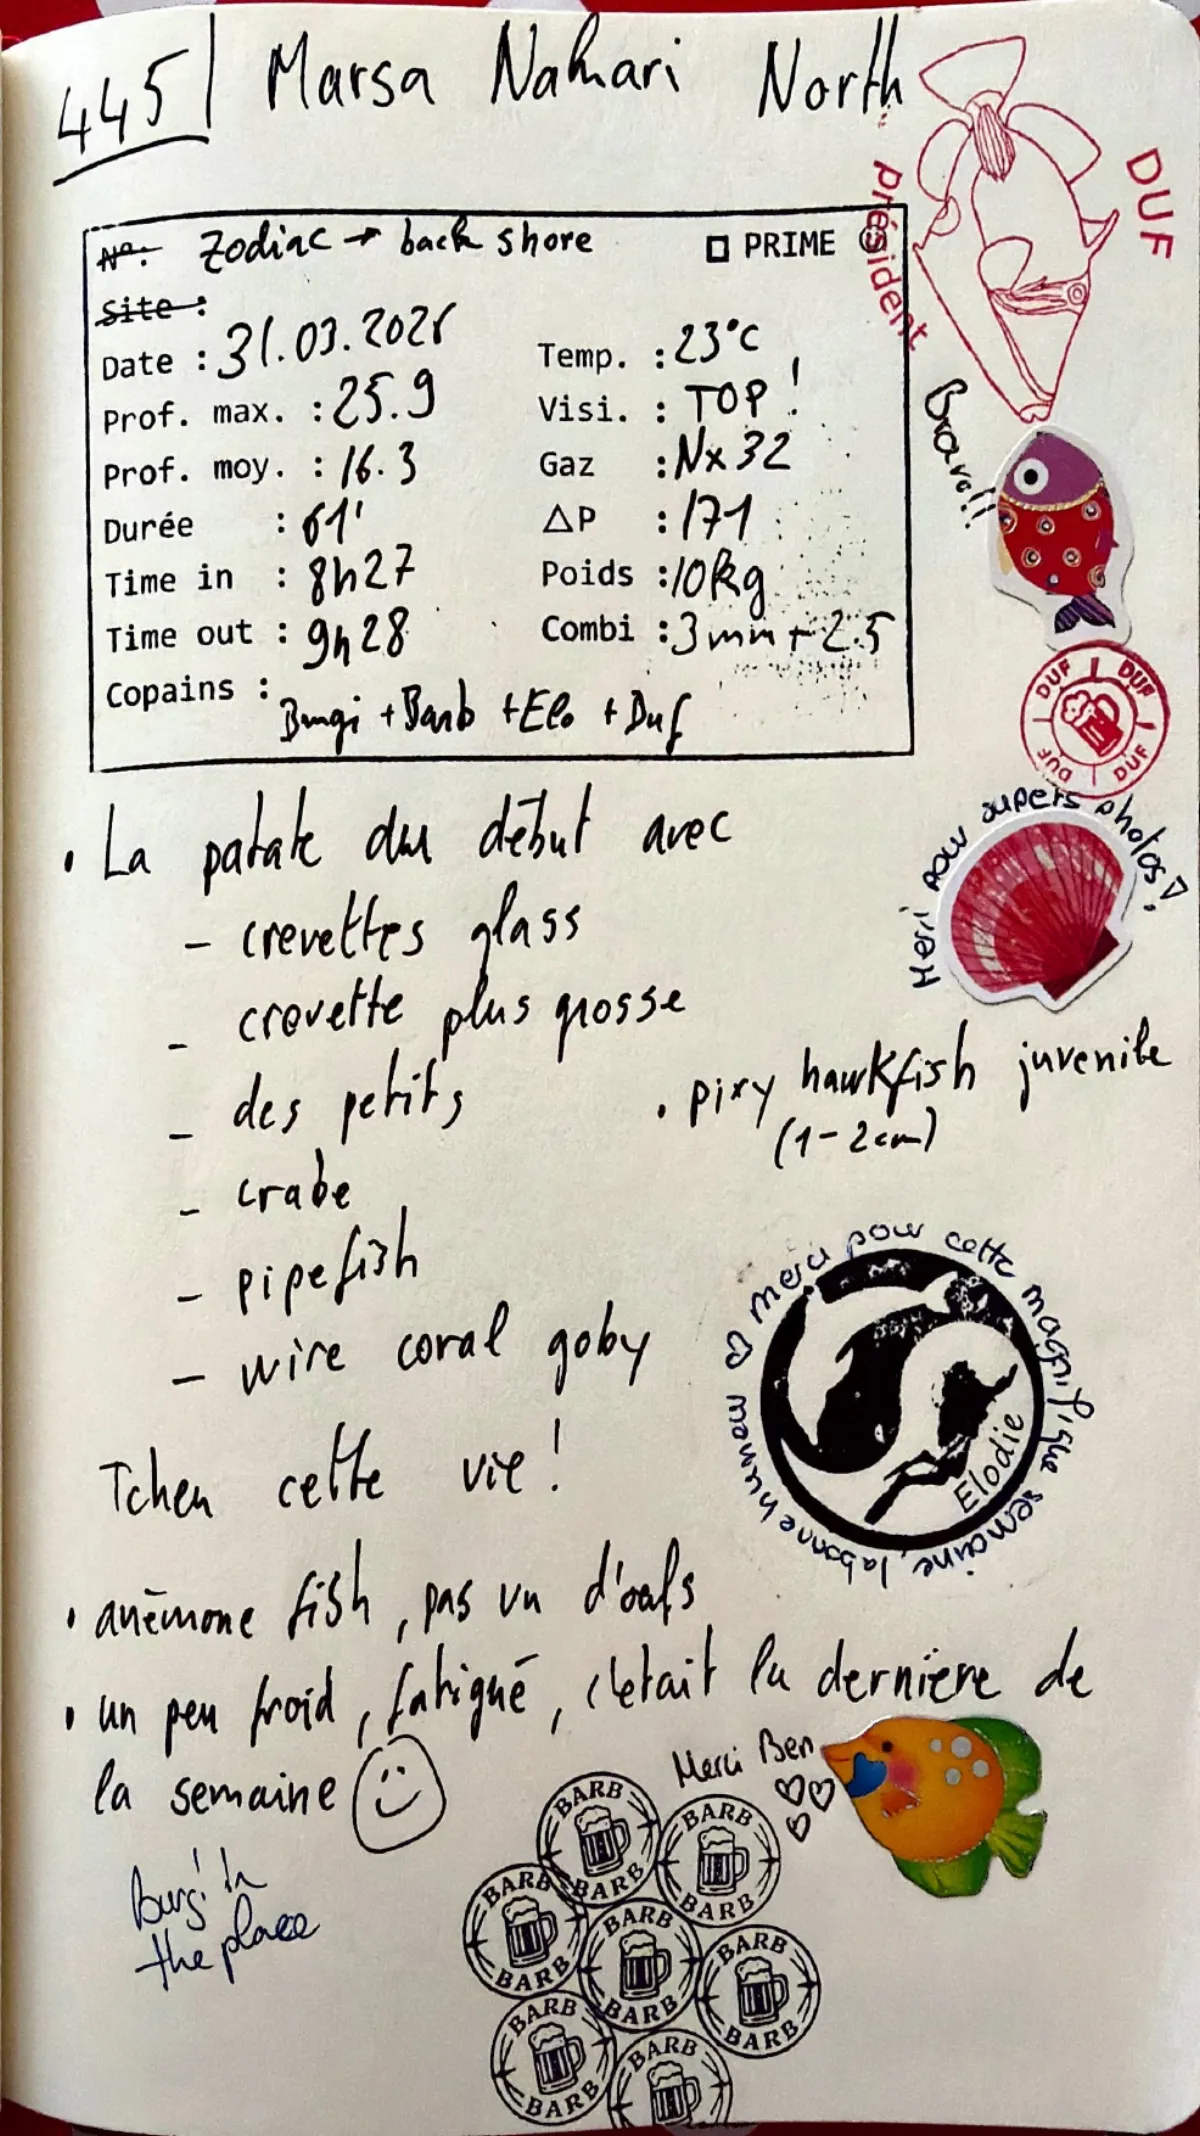 445 | Marsa Nakari North
DUF
Président
N°: Zodiac → back shore ☐ PRIME
Site :
Date : 31.03.2025 Temp. : 23°C
Prof. max. : 25.9 Visi. : TOP !
Prof. moy. : 16.3 Gaz : Nx 32
Durée : 61' ΔP : 171
Time in : 8h27 Poids : 10kg
Time out : 9h28 Combi : 3mm + 2.5
Copains : Bungi + Barb + Elo + Duf
Bravo!!
DUF DUF DUF DUF
Merci pour supers photos!
• La patate du début avec
- crevettes glass
- crevette plus grosse
- des petits
• pixy hawkfish juvenile
(1-2cm)
- crabe
- pipefish
- wire coral goby
♡ merci pour cette magnifique semaine, la bonne humeur
Elodie
Tcheu cette vie !
• anémone fish, pas vu d'oeufs
• un peu froid, fatigué, c'était la dernière de
la semaine
Merci Ben
the place
BARB BARB
BARB BARB
BARB BARB
BARB BARB
BARB BARB
BARB BARB
BARB